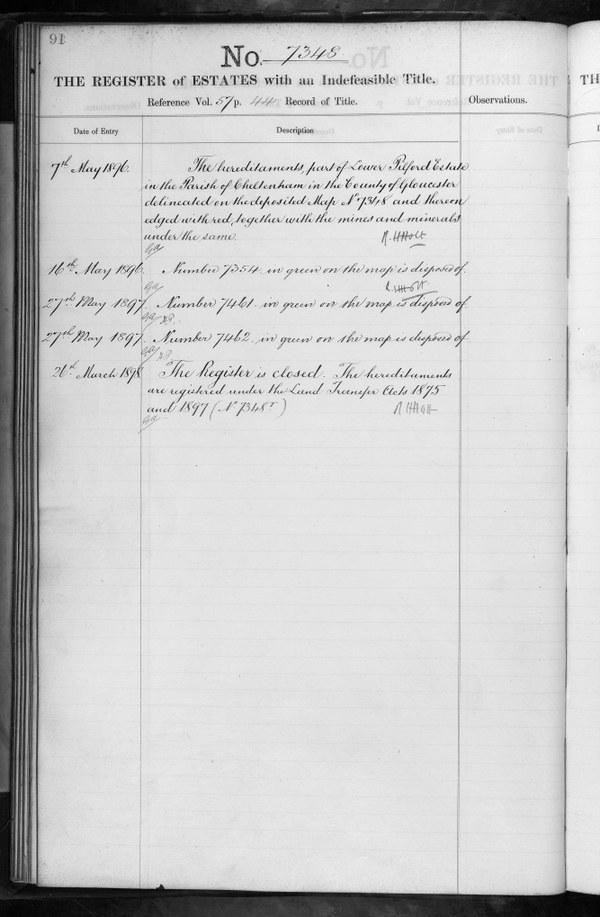 91
No. 7348.
THE REGISTER of ESTATES with an Indefeasible Title.
Reference Vol. 57 p. 44 Record of Title.
Observations.
Date of Entry
Description
7th May 1896.
The hereditaments, part of Lower Pilford Estate
in the Parish of Cheltenham in the County of Gloucester
delineated on the deposited Map No 7348 and thereon
edged with red, together with the mines and minerals
under the same.
R. H Holt
16th May 1896. Number 7354 in green on the map is disposed of.
R. H Holt
27th May 1897. Number 7461 in green on the map is disposed of
27th May 1897. Number 7462 in green on the map is disposed of
26th March 1898 The Register is closed. The hereditaments
are registered under the Land Transfer Acts 1875
and 1897 (No 7348T)
R H Holt
TH
D